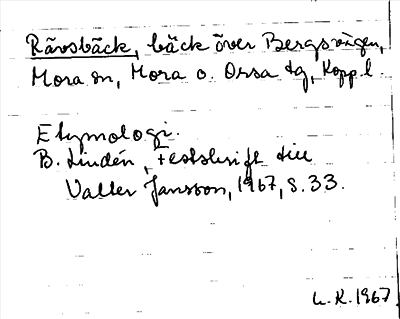 Rävsbäck, bäck över Bergsvägen,
Mora sn, Mora o. Orsa tg, Kopp.l.
Etymologi.
B. Lindén, Festskrift till
Valter Jansson, 1967, s. 33.
L.K. 1967